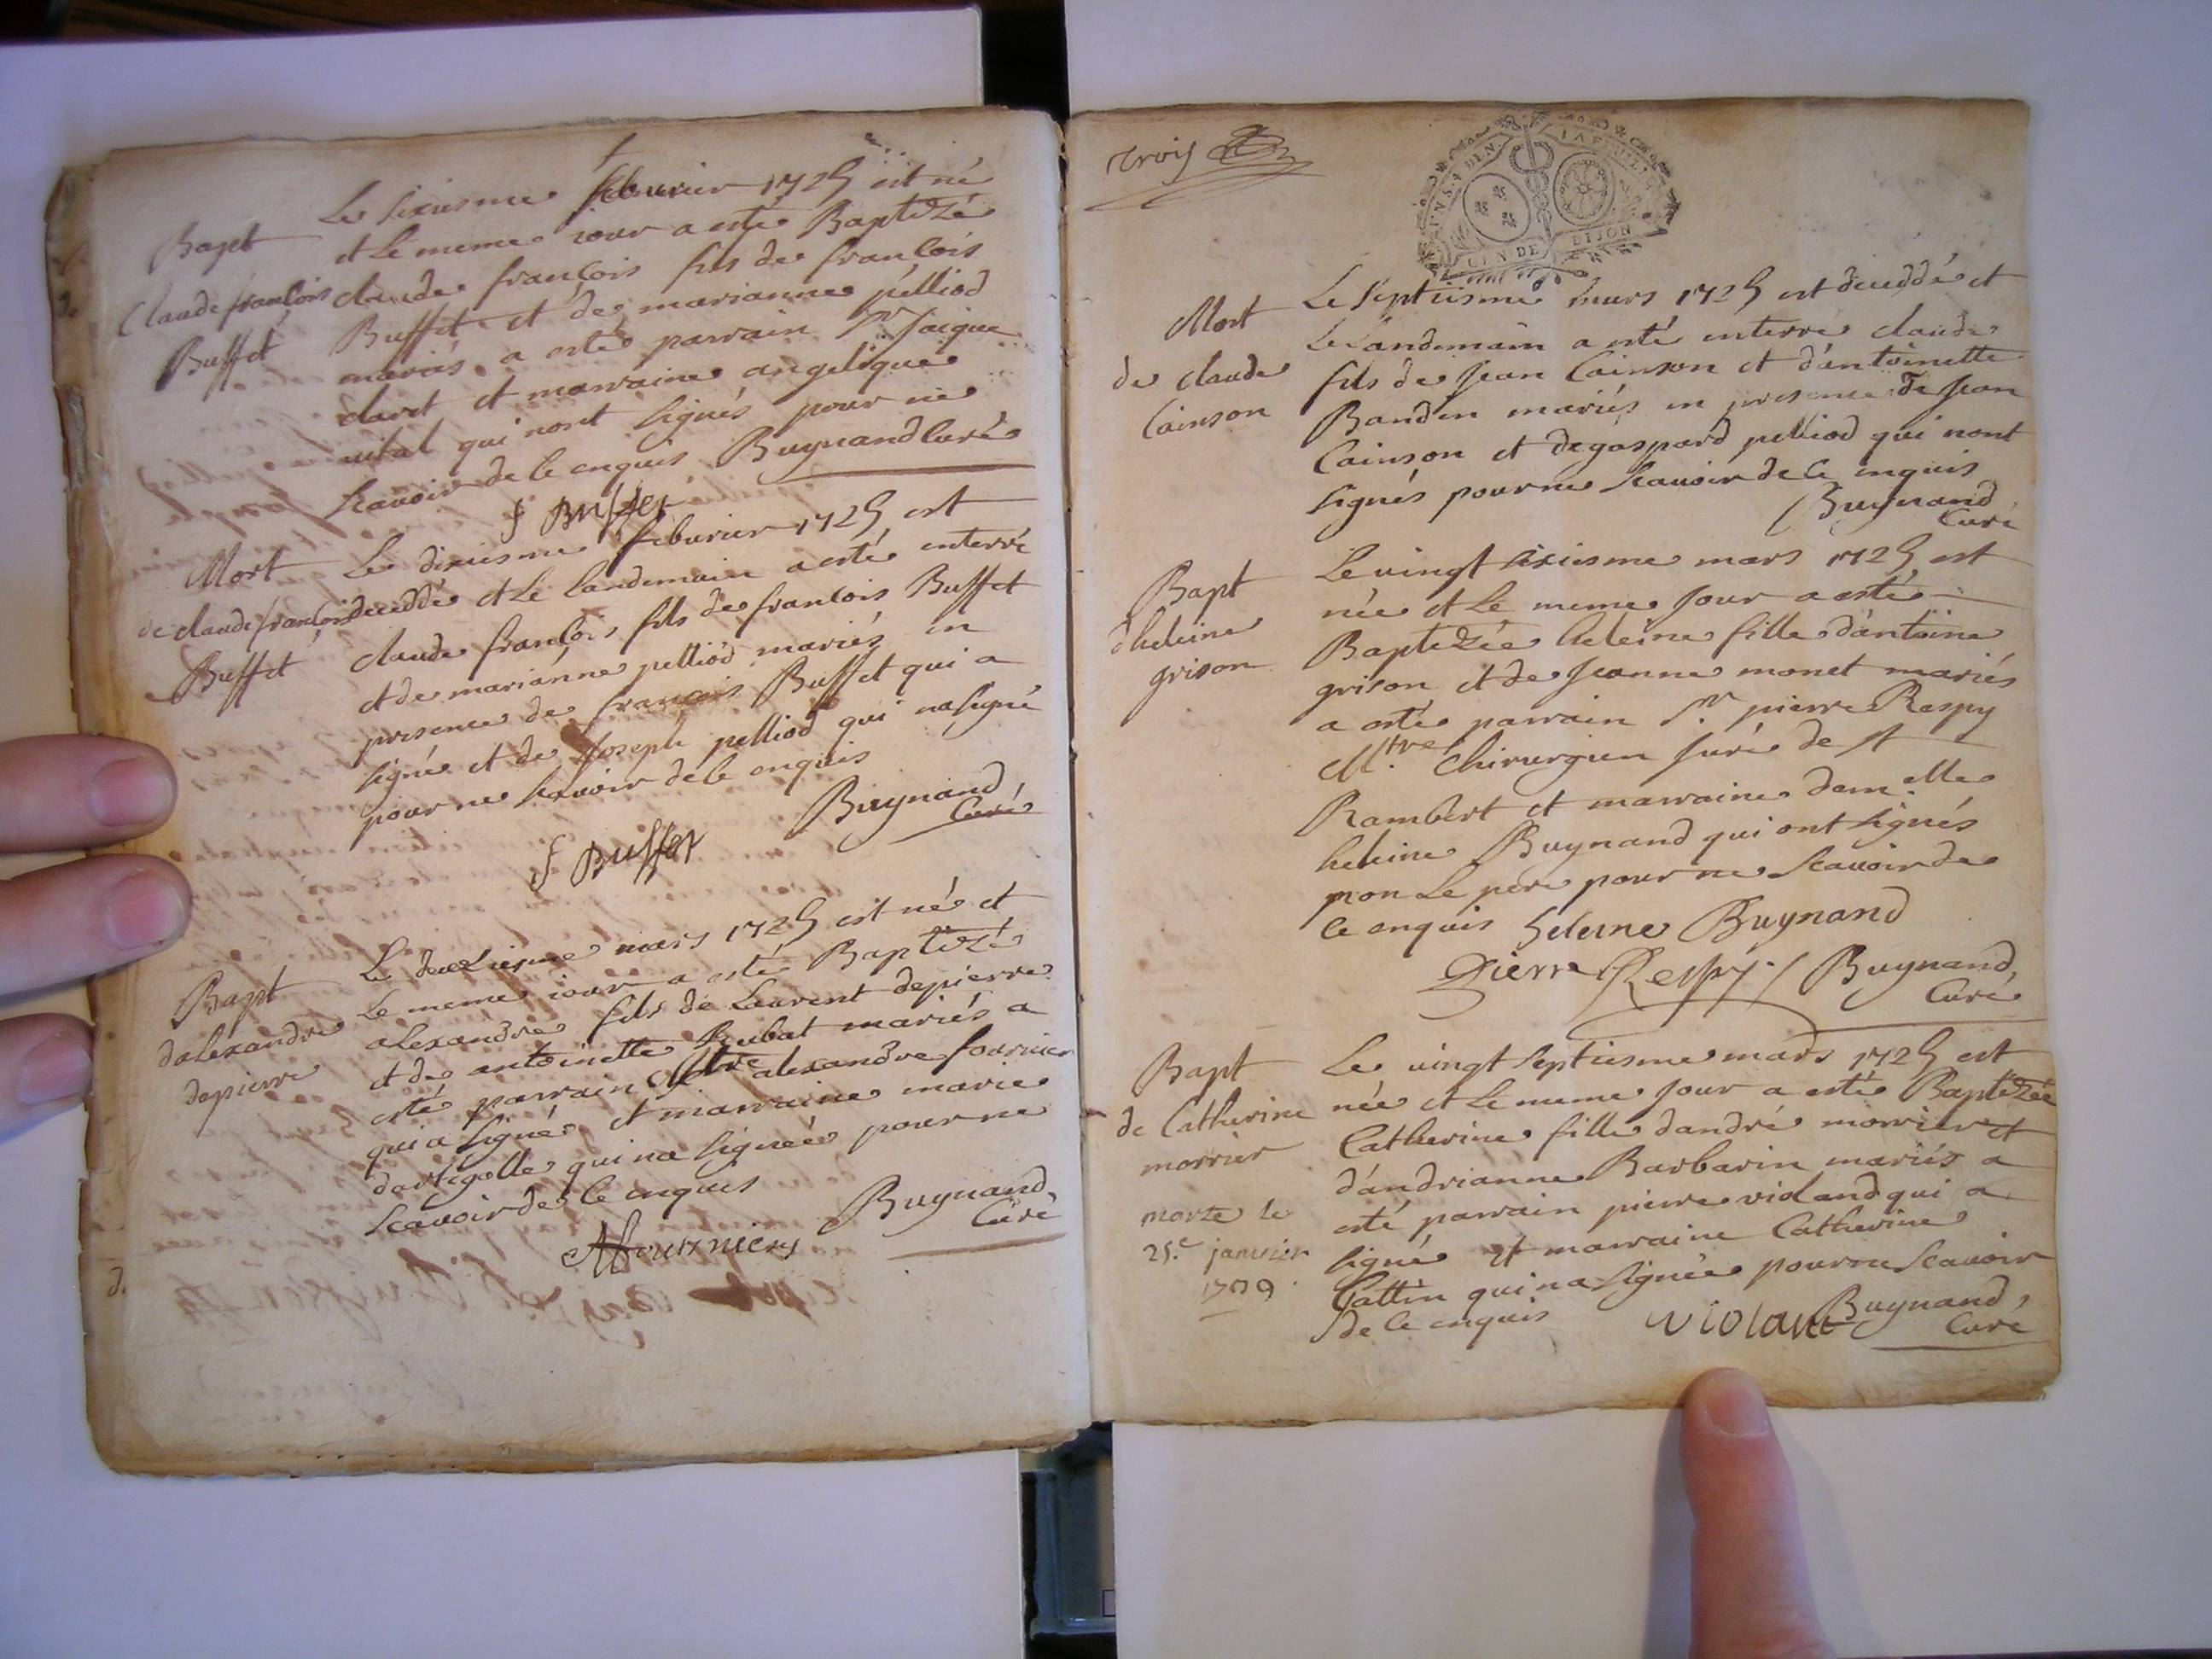 Le sixiesme feburier 1725 est né
Bapt et le meme iour a esté Baptizé
Claude francois claude françois fils de francois
Buffet Buffet et de marianne pelliod
mariés a esté parrain Sr Jaique
claret et marraine angelique
uital qui nont signés pour ne
scauoir de ce enquis Buynand curé
f Buffet
Mort Le dixiesme feburier 1725 est
de claude francois deceddé et Le Landemain a esté enterré
Buffet claude françois fils de francois Buffet
et de marianne pelliod mariés en
presence de francois Buffet qui a
signé et de Joseph pelliod qui na signé
pour ne scauoir de ce enquis
Buynand
Curé
f Buffet
Le deuxiesme mars 1725 est né et
Bapt Le meme iour a esté Baptizé
dalexandre alexandre fils de Laurent depierre
depierre et de antoinette Rubat mariés a
esté parrain Mtre alexandre fournier
qui a signé et marraine marie
dartigolle qui na signeé pour ne
scauoir de ce enquis
Buynand
Curé
AFourniery
trois
GEN DE DIJON
Mort Le septiesme mars 1725 est deceddé et
de claude Le Landemain a esté enterré claude
Cainson fils de Jean Cainson et dantoinette
Bandin mariés en presence de Jean
Cainson et de gaspard pelliod qui nont
signés pour ne scauoir de ce enquis
Buynand
Curé
Bapt Le uingt sixiesme mars 1725 est
dheleine née et Le meme Jour a esté
grison Baptizée heleine fille dantoine
grison et de Jeanne monet mariés
a esté parrain Sr pierre Respy
Mtre Chirurgien Juré de St
Rambert et marraine damelle
heleine Buynand qui ont signés
non Le pere pour ne scauoir de
ce enquis helene Buynand
Pierre Respy Buynand
Curé
Bapt Le uingt septiesme mars 1725 est
de Catherine née et Le meme Jour a esté Baptizée
morrier Catherine fille dandré morrier et
dandrianne Barbarin mariés a
morte le esté parrain pierre violand qui a
25e janvier signé et marraine Catherine
1709 Cattin qui na signée pour ne scauoir
de ce enquis violant Buynand
Curé